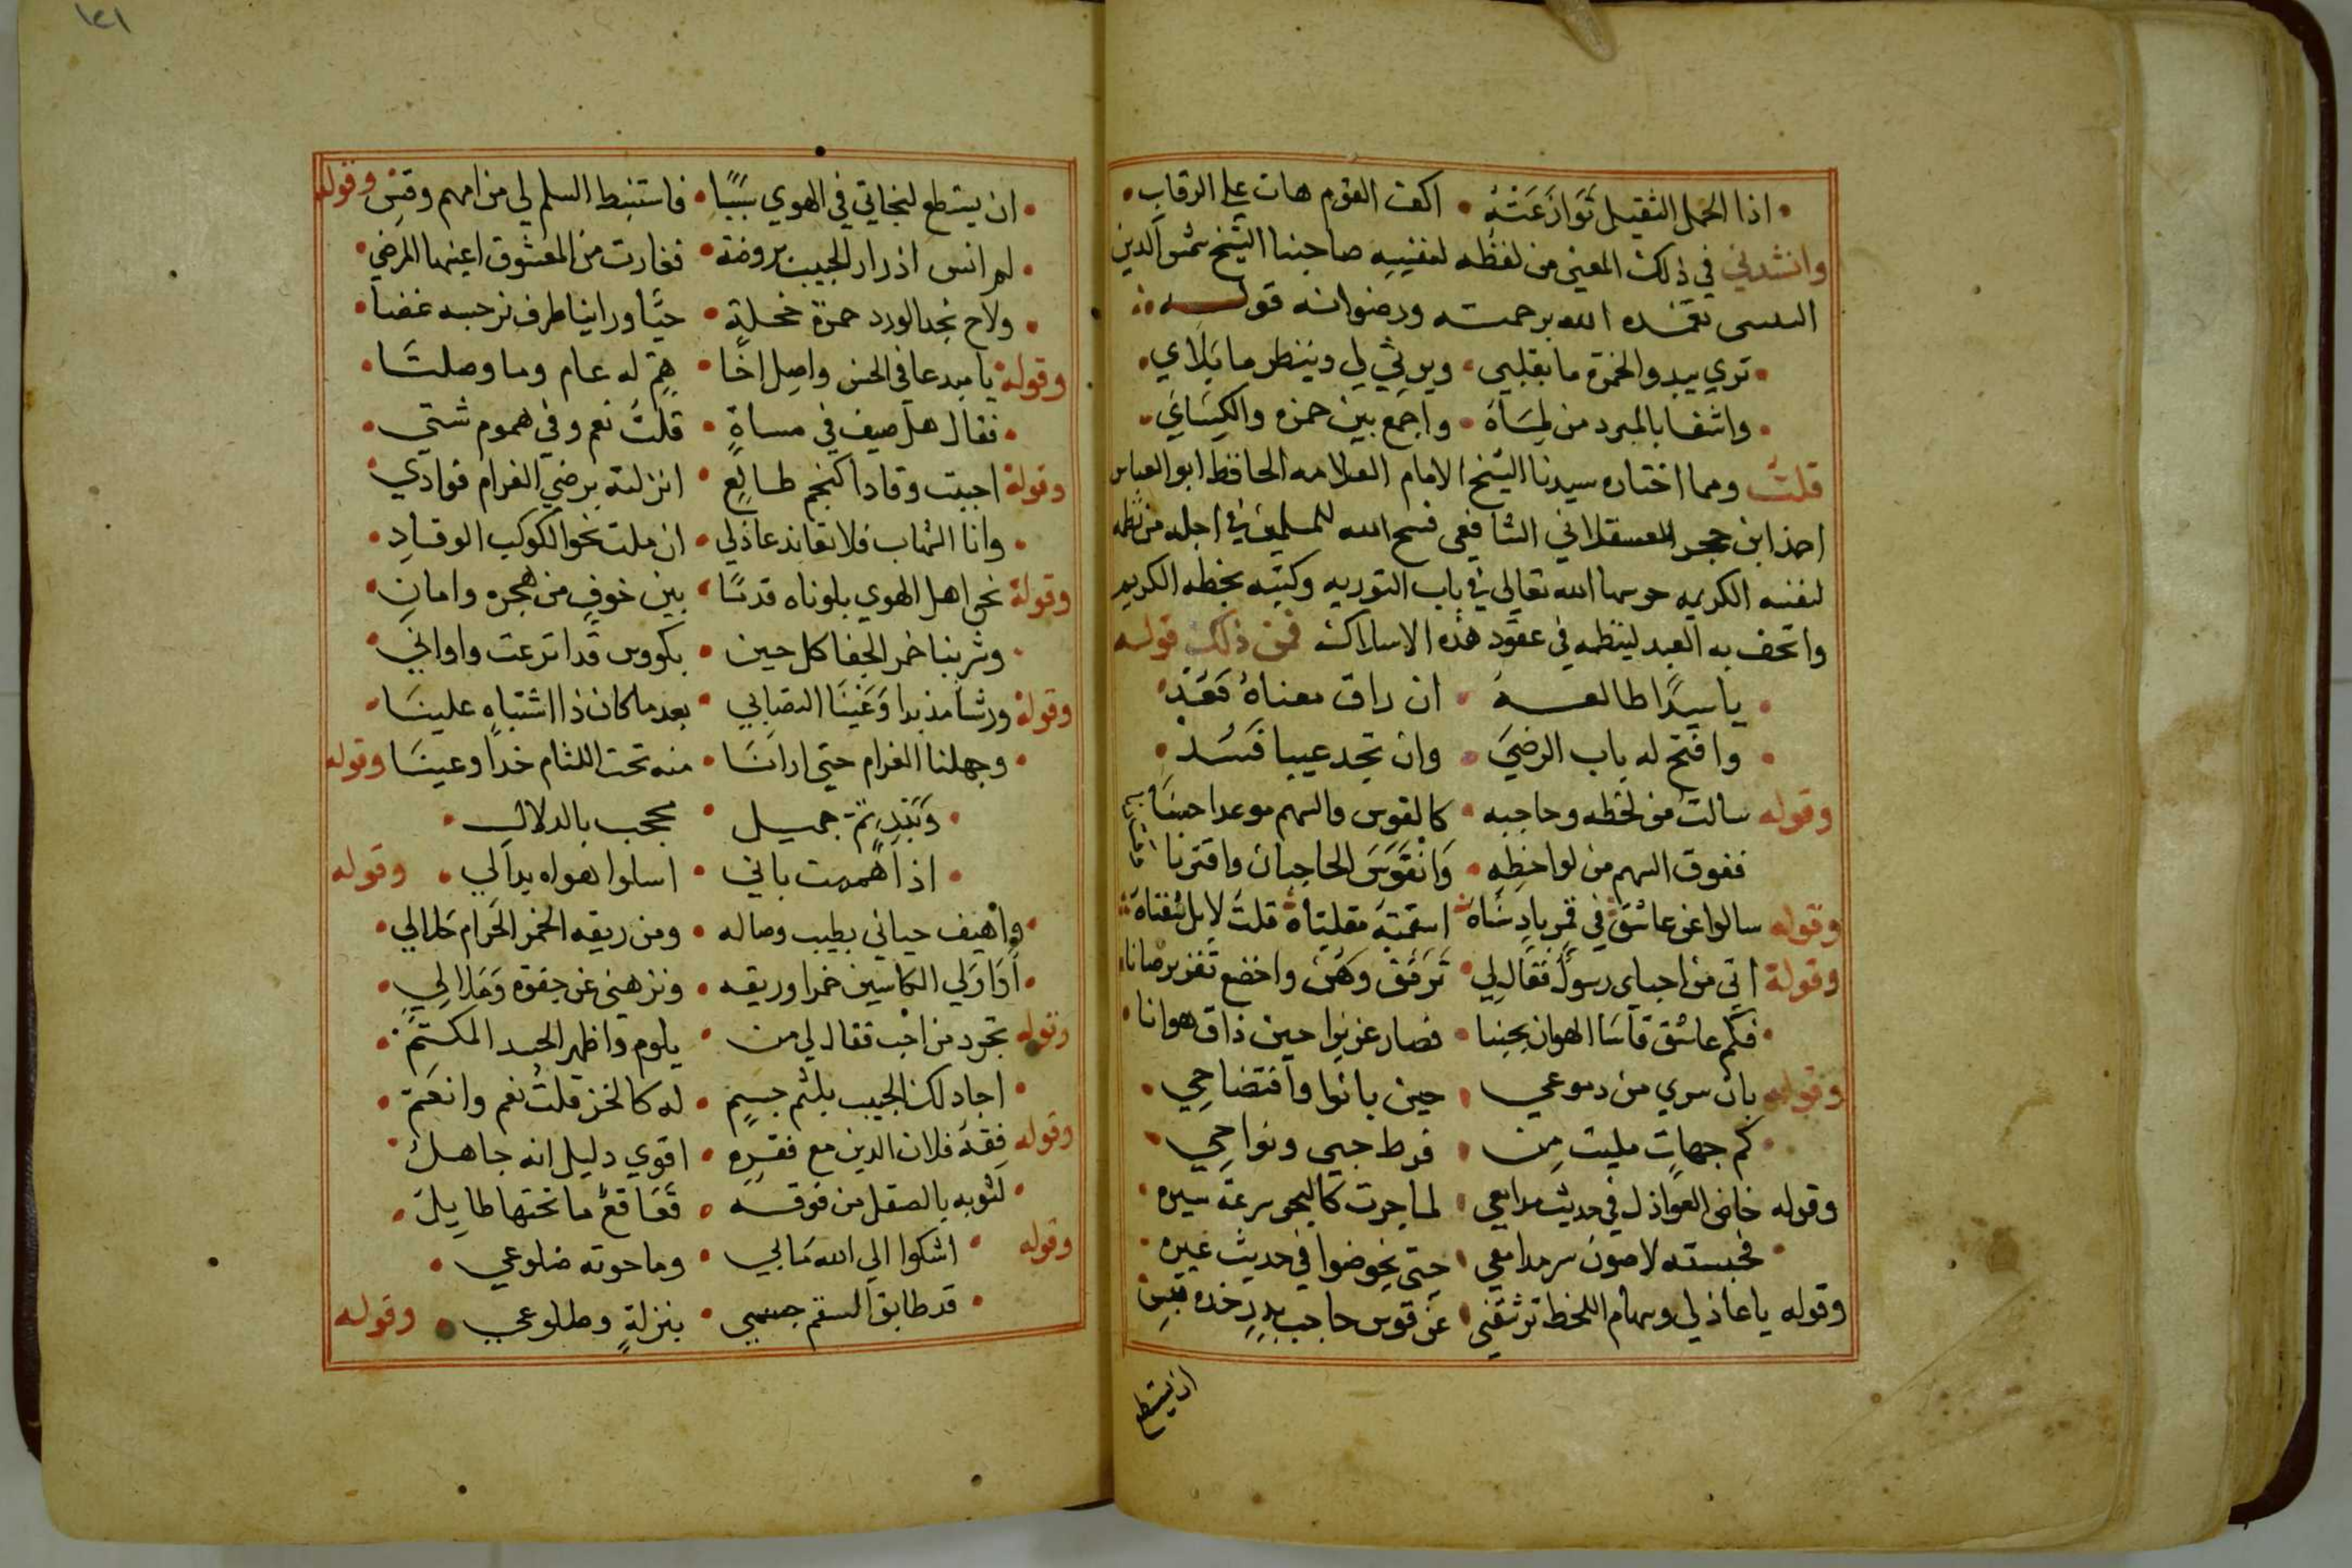 اذا الحمل الثقيل توازعته • اكف القوم هان علي الرقاب
وانشدني في ذلك المعني من لفظه لنفسه صاحبنا الشيخ شمس الدين
تغمده الله برحمته ورضوانه قوله
تري يبدو لحمزة ما بقلبي • ويرثي لي وينظر ما بلاي
واشفا بالمبرد من لماه • واجمع بين حمزه والكساي
قلت ومما اختاره سيدنا الشيخ الامام العلامه الحافظ ابو العباس
احمد ابن حجر العسقلاني الشافعي فسح الله للمسلمين في اجله من نظمه
لنفسه الكريمه حرسها الله تعالي في باب التوريه وكتبه بخطه الكريم
واتحف به العبد لينظمه في عقود هذه الاسلاك فمن ذلك قوله
يا سيدا طالعه • ان راق معناه فعد
وافتح له باب الرضي • وان تجد عيبا فسد
وقوله سالت من لحظه وحاجبه • كالقوس والسهم موعدا حسنا
ففوق السهم من لواحظه • وانقوس الحاجبان واقترنا
وقوله سالوا عن عاشق في قمر باد سناه اسقمته مقلتاه قلت لا بل شفتاه
وقوله اتي من احباي رسول فقال لي • ترفق وهن واخضع تفز برضانا
فكم عاشق قاسا الهوان بحبنا • فصار عزيزا حين ذاق هوانا
وقوله بان سري من دموعي • حين بانوا وافتضاحي
كم جهات مليت من • فرط حبي ونواحي
وقوله خاض العواذل في حديث مدامعي • لما جرت كالبحر سرعة سيره
فحبسته لاصون سر مدامعي • حتي يخوضوا في حديث غيره
وقوله يا عاذلي وسهام اللحظ ترشقني • عن قوس حاجب بدر خده قبس
ان يستطع
١٤١
ان يستطع لنجاتي في الهوي سببا • فاستنبط السلم لي من امهم وقس وقوله
لم انس اذ زار الحبيب بروضة • فغارت من المعشوق اعينها المرضي
ولاح بخد الورد حمرة خجلة • حيا وراينا طرف نرجسه غضا
وقوله يا مبدعا في الحسن واصل اخا • هم له عام وما وصلتا
فقال هل صيف في مساة • قلت نعم وفي هموم شتي
وقوله احببت وقادا كنجم طالع • انزلته برضي الغرام فوادي
وانا الشهاب فلا تعاند عاذلي • ان ملت نحو الكوكب الوقاد
وقوله نحن اهل الهوي بلوناه قدما • بين خوف من هجره وامان
وشربنا خمر الجفا كل حين • بكووس قد اترعت واواني
وقوله ورشا مذ بدا وغينا التصابي • بعد ما كان ذا اشتباه علينا
وجهلنا الغرام حتي ارانا • منه تحت اللثام خدا وعينا وقوله
وبدر تم جميل • محجب بالدلال
اذا هممت باني • اسلوا هواه بدا لي • وقوله
واهيف حياني بطيب وصاله • ومن ريقه الخمر الحرام حلا لي
ادار لي الكاسين خمرا وريقه • ونزهني عن جفوة وملال
وقوله تجرد من احب فقال لي من • يلوم واظهر الحسد المكتم
اجاد لك الحبيب بلثم جسم • له كالخز قلت نعم وانعم
وقوله فقه فلان الدين مع فقره • اقوي دليل انه جاهل
لثوبه بالصقل من فوقه • قعاقع ما تحتها طايل
وقوله اشكوا الي الله ما بي • وما حوته ضلوعي
قد طابق السقم جسمي • بنزلة وطلوعي • وقوله